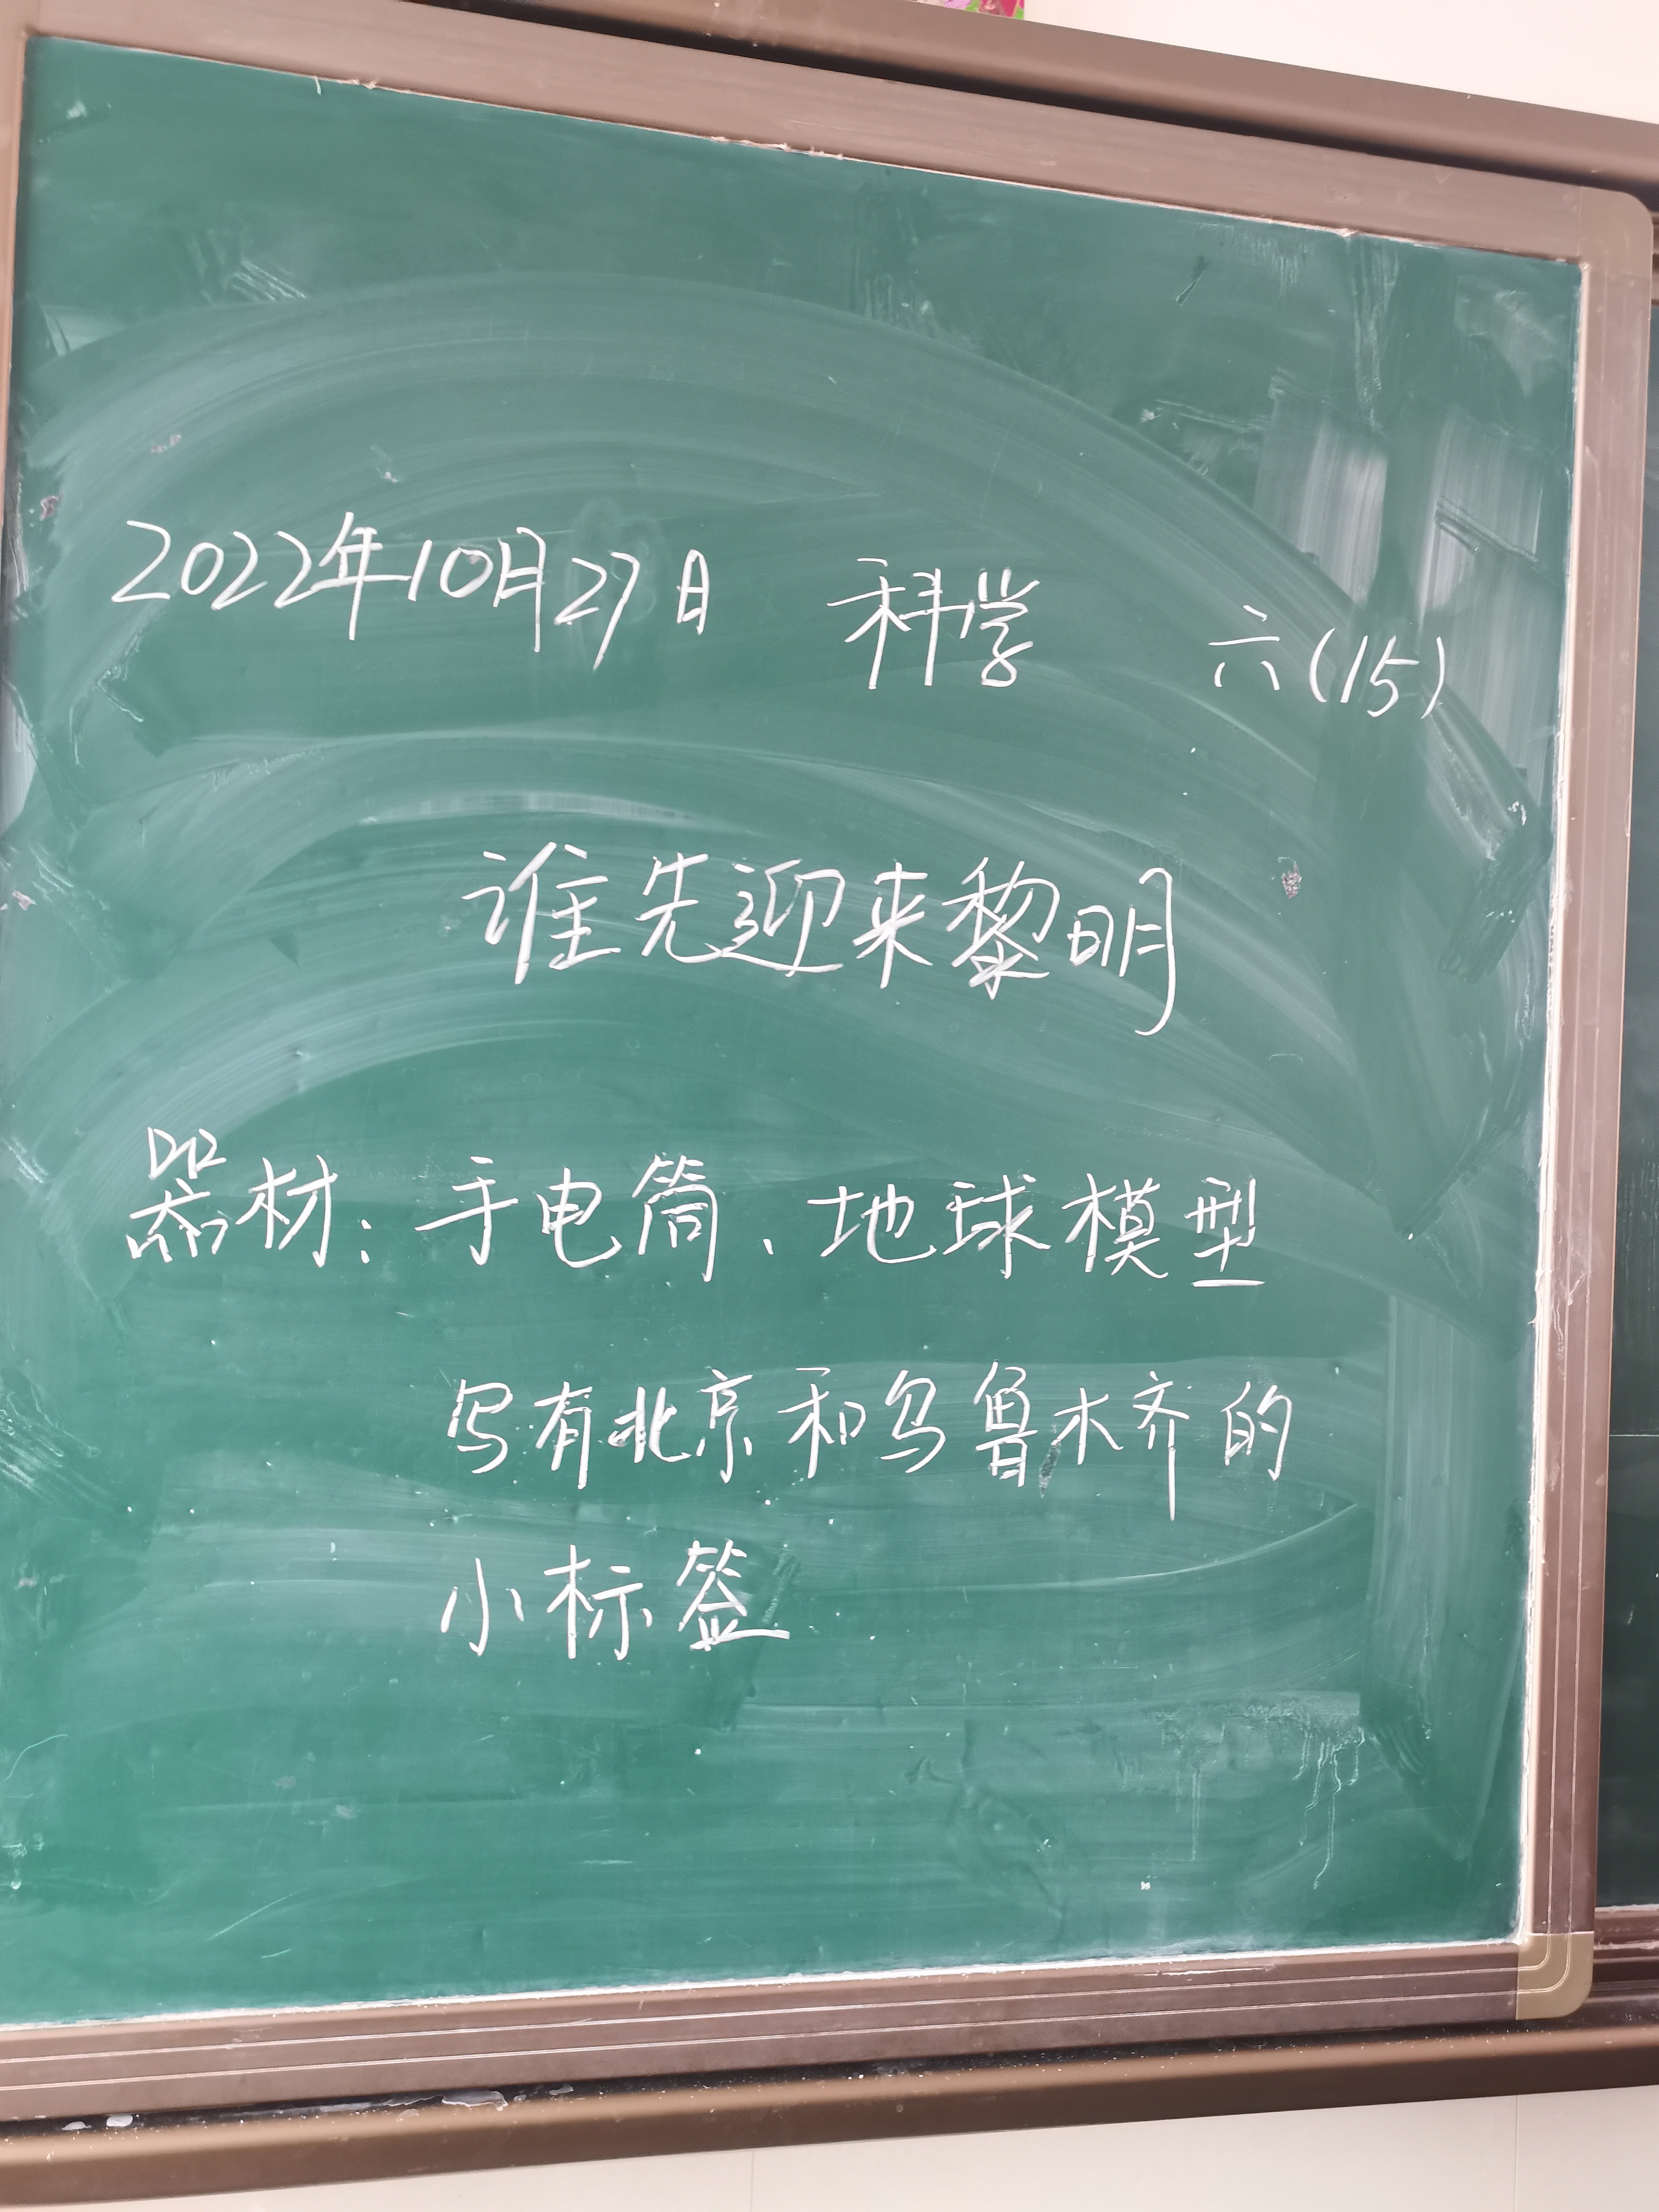 2022年10月27日 科学 六(15)
谁先迎来黎明
器材:手电筒、地球模型
写有北京和乌鲁木齐的
小标签